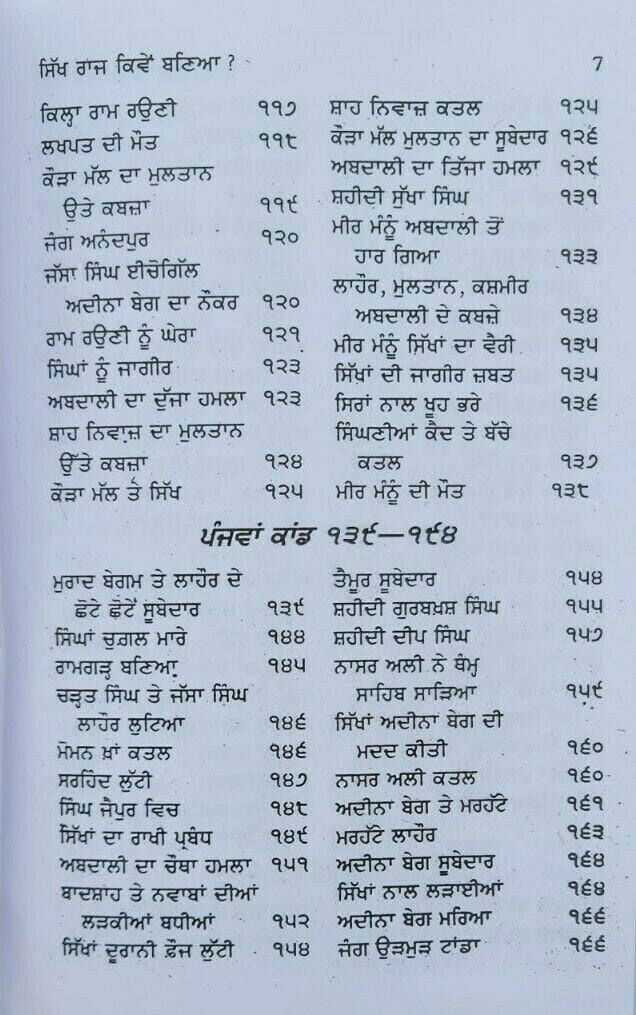 ਸਿੱਖ ਰਾਜ ਕਿਵੇਂ ਬਣਿਆ ? 7
ਕਿਲ੍ਹਾ ਰਾਮ ਰਉਣੀ ੧੧੭
ਲਖਪਤ ਦੀ ਮੌਤ ੧੧੮
ਕੌੜਾ ਮੱਲ ਦਾ ਮੁਲਤਾਨ
ਉਤੇ ਕਬਜ਼ਾ ੧੧੯
ਜੰਗ ਅਨੰਦਪੁਰ ੧੨੦
ਜੱਸਾ ਸਿੰਘ ਈਚੋਗਿੱਲ
ਅਦੀਨਾ ਬੇਗ ਦਾ ਨੌਕਰ ੧੨੦
ਰਾਮ ਰਉਣੀ ਨੂੰ ਘੇਰਾ ੧੨੧
ਸਿੰਘਾਂ ਨੂੰ ਜਾਗੀਰ ੧੨੩
ਅਬਦਾਲੀ ਦਾ ਦੂੱਜਾ ਹਮਲਾ ੧੨੩
ਸ਼ਾਹ ਨਿਵਾਜ਼ ਦਾ ਮੁਲਤਾਨ
ਉੱਤੇ ਕਬਜ਼ਾ ੧੨੪
ਕੌੜਾ ਮੱਲ ਤੇ ਸਿੱਖ ੧੨੫
ਸ਼ਾਹ ਨਿਵਾਜ਼ ਕਤਲ ੧੨੫
ਕੌੜਾ ਮੱਲ ਮੁਲਤਾਨ ਦਾ ਸੂਬੇਦਾਰ ੧੨੬
ਅਬਦਾਲੀ ਦਾ ਤਿੱਜਾ ਹਮਲਾ ੧੨੯
ਸ਼ਹੀਦੀ ਸੁੱਖਾ ਸਿੰਘ ੧੩੧
ਮੀਰ ਮੰਨੂੰ ਅਬਦਾਲੀ ਤੋਂ
ਹਾਰ ਗਿਆ ੧੩੩
ਲਾਹੌਰ, ਮੁਲਤਾਨ, ਕਸ਼ਮੀਰ
ਅਬਦਾਲੀ ਦੇ ਕਬਜ਼ੇ ੧੩੪
ਮੀਰ ਮੰਨੂੰ ਸਿੱਖਾਂ ਦਾ ਵੈਰੀ ੧੩੫
ਸਿੱਖਾਂ ਦੀ ਜਾਗੀਰ ਜ਼ਬਤ ੧੩੫
ਸਿਰਾਂ ਨਾਲ ਖੂਹ ਭਰੇ ੧੩੬
ਸਿੰਘਣੀਆਂ ਕੈਦ ਤੇ ਬੱਚੇ
ਕਤਲ ੧੩੭
ਮੀਰ ਮੰਨੂੰ ਦੀ ਮੌਤ ੧੩੮
ਪੰਜਵਾਂ ਕਾਂਡ ੧੩੯—੧੯੪
ਮੁਰਾਦ ਬੇਗਮ ਤੇ ਲਾਹੌਰ ਦੇ
ਛੋਟੇ ਛੋਟੇਂ ਸੂਬੇਦਾਰ ੧੩੯
ਸਿੰਘਾਂ ਚੁਗ਼ਲ ਮਾਰੇ ੧੪੪
ਰਾਮਗੜ੍ਹ ਬਣਿਆ ੧੪੫
ਚੜ੍ਹਤ ਸਿੰਘ ਤੇ ਜੱਸਾ ਸਿੰਘ
ਲਾਹੌਰ ਲੁਟਿਆ ੧੪੬
ਮੋਮਨ ਖ਼ਾਂ ਕਤਲ ੧੪੬
ਸਰਹਿੰਦ ਲੁੱਟੀ ੧੪੭
ਸਿੰਘ ਜੈਪੁਰ ਵਿਚ ੧੪੮
ਸਿੱਖਾਂ ਦਾ ਰਾਖੀ ਪ੍ਰਬੰਧ ੧੪੯
ਅਬਦਾਲੀ ਦਾ ਚੌਥਾ ਹਮਲਾ ੧੫੧
ਬਾਦਸ਼ਾਹ ਤੇ ਨਵਾਬਾਂ ਦੀਆਂ
ਲੜਕੀਆਂ ਬਧੀਆਂ ੧੫੨
ਸਿੱਖਾਂ ਦੂਰਾਨੀ ਫ਼ੌਜ ਲੁੱਟੀ ੧੫੪
ਤੈਮੂਰ ਸੂਬੇਦਾਰ ੧੫੪
ਸ਼ਹੀਦੀ ਗੁਰਬਖ਼ਸ਼ ਸਿੰਘ ੧੫੫
ਸ਼ਹੀਦੀ ਦੀਪ ਸਿੰਘ ੧੫੭
ਨਾਸਰ ਅਲੀ ਨੇ ਥੰਮ੍ਹ
ਸਾਹਿਬ ਸਾੜਿਆ ੧੫੯
ਸਿੱਖਾਂ ਅਦੀਨਾਂ ਬੇਗ ਦੀ
ਮਦਦ ਕੀਤੀ ੧੬੦
ਨਾਸਰ ਅਲੀ ਕਤਲ ੧੬੦
ਅਦੀਨਾ ਬੇਗ ਤੇ ਮਰਹੱਟੇ ੧੬੧
ਮਰਹੱਟੇ ਲਾਹੌਰ ੧੬੩
ਅਦੀਨਾ ਬੇਗ ਸੂਬੇਦਾਰ ੧੬੪
ਸਿੱਖਾਂ ਨਾਲ ਲੜਾਈਆਂ ੧੬੪
ਅਦੀਨਾ ਬੇਗ ਮਰਿਆ ੧੬੬
ਜੰਗ ਉੜਮੁੜ ਟਾਂਡਾ ੧੬੬